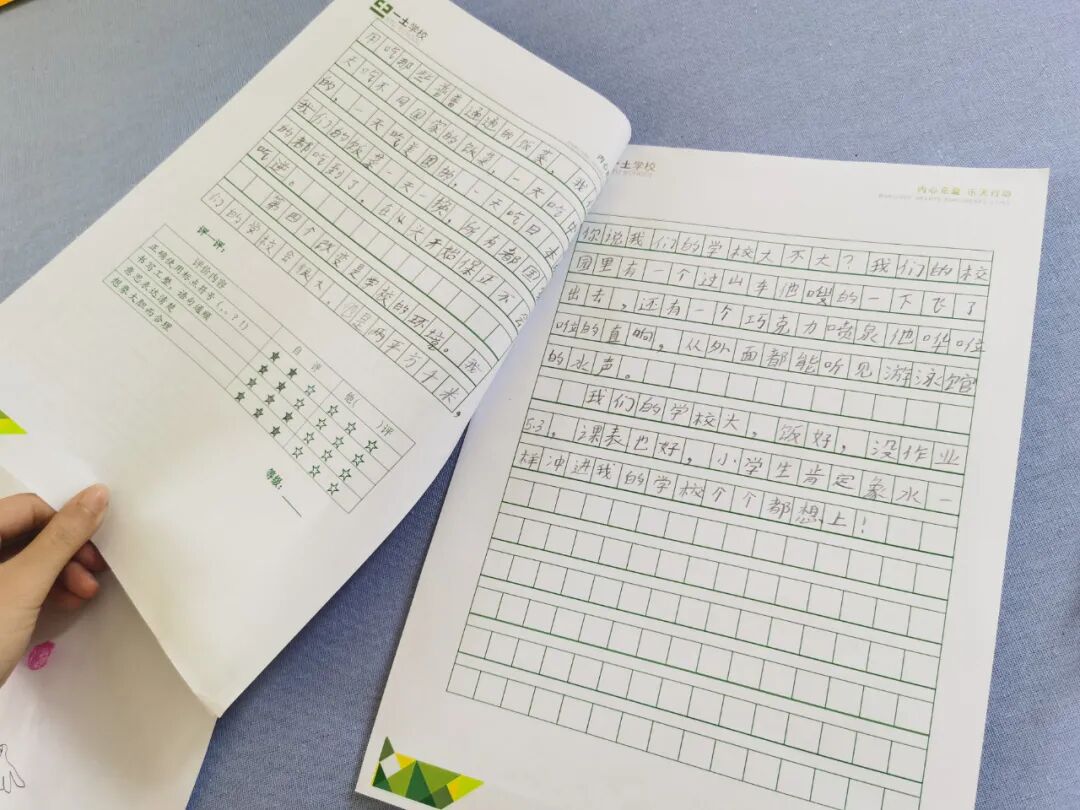 一土学校
用吃那些普普通通的饭菜，我
天吃不同国家的饭菜，一天
的，一天吃美国的，一天吃日本
我们的饭菜一天一换，所有都国
的都吃到了，在从头开始保正不会
吃逆。
第四个改变是学校的环境。我
们的学校会很大，两平方千米，
评一评：
评价内容
自评
他（ ）评
正确使用标点符号（，。？！）
书写工整，语句通顺
意思表达清楚
想象大胆而合理
等级：
一土学校
内心充盈 乐活行动
你说我们的学校大不大？我们的校
园里有一个过山车他嗖的一下飞了
出去，还有一个巧克力喷泉他哗啦
啦的直响，从外面都能听见游泳馆
的水声。
我们的学校大，饭好，没作业
53，课表也好，小学生肯定象水一
样冲进我的学校个个都想上！